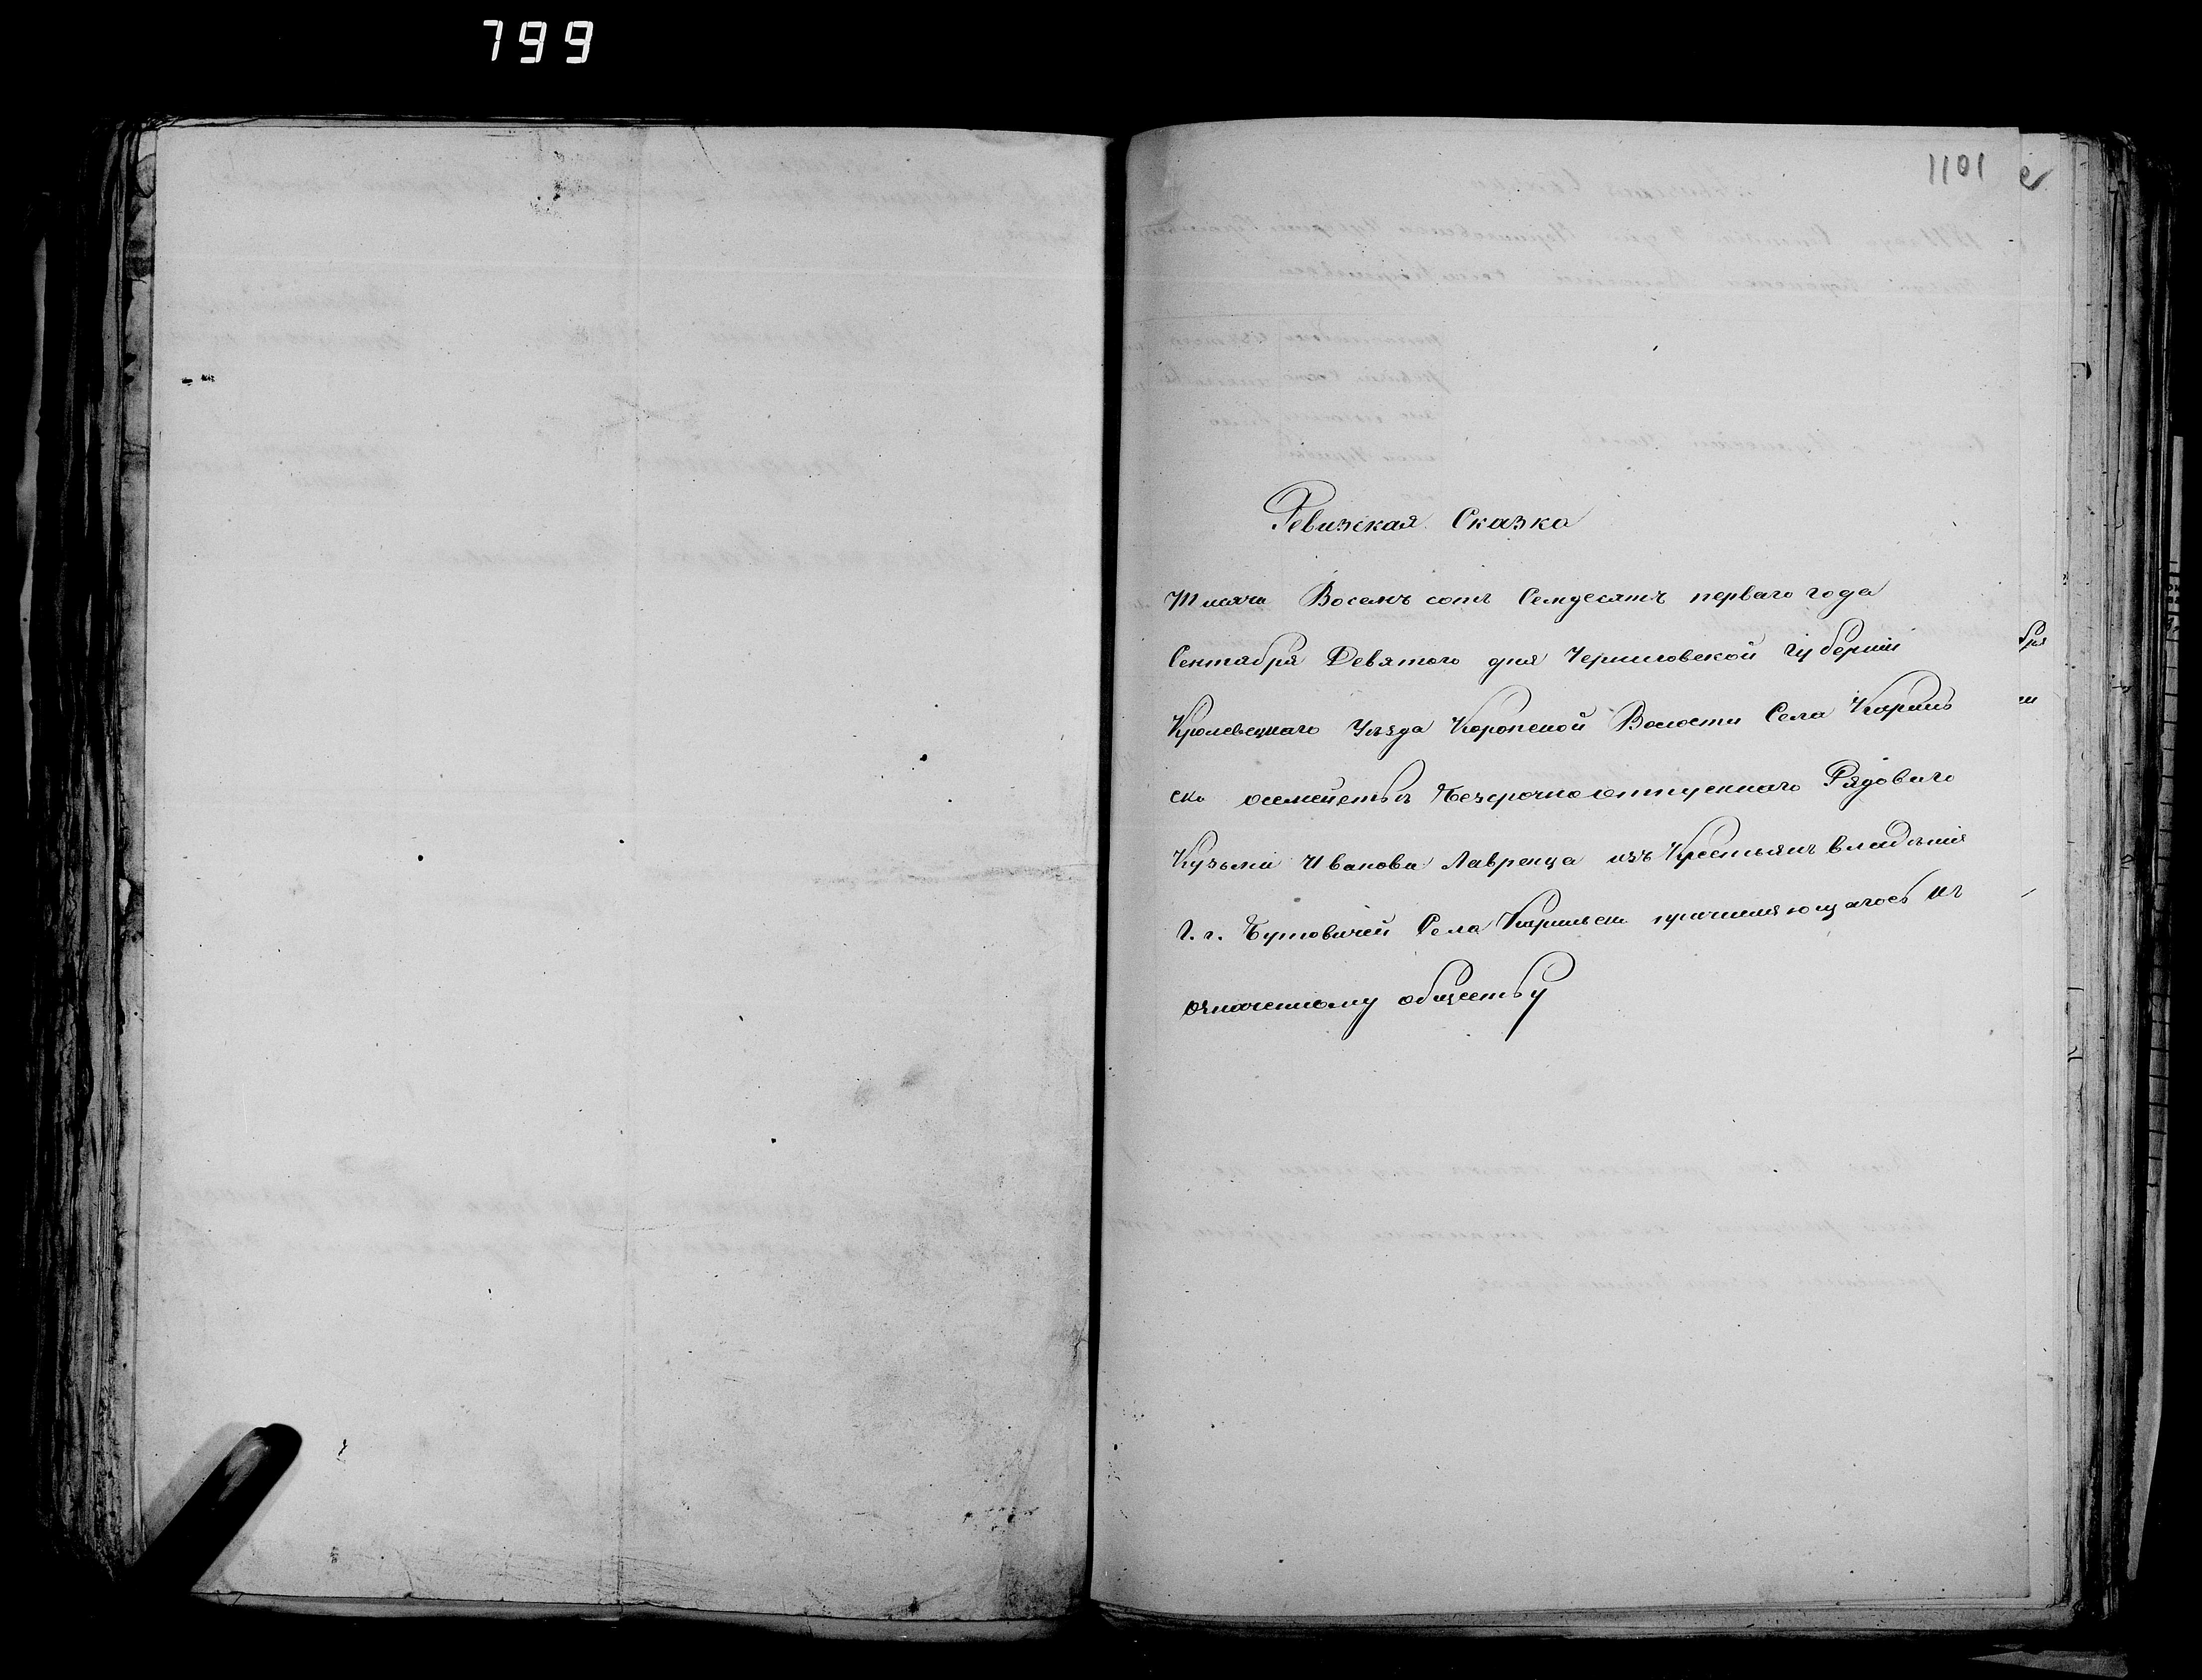 799
1101
Ревизская Сказка
Тысяча Восемъ сотъ Семдесятъ перваго года
Сентября Девятого дня Черниговской губерніи
Кролевецкаго Уѣзда Коропской Волости Села Карилъ
ско осемействѣ Безсрочноотпускнаго Рядоваго
Кузьмы Иванова Лавренца изъ Крестьянъ владѣнія
Г. г. Бутовичей Села Карильск причисляющагось къ
означенному обществу